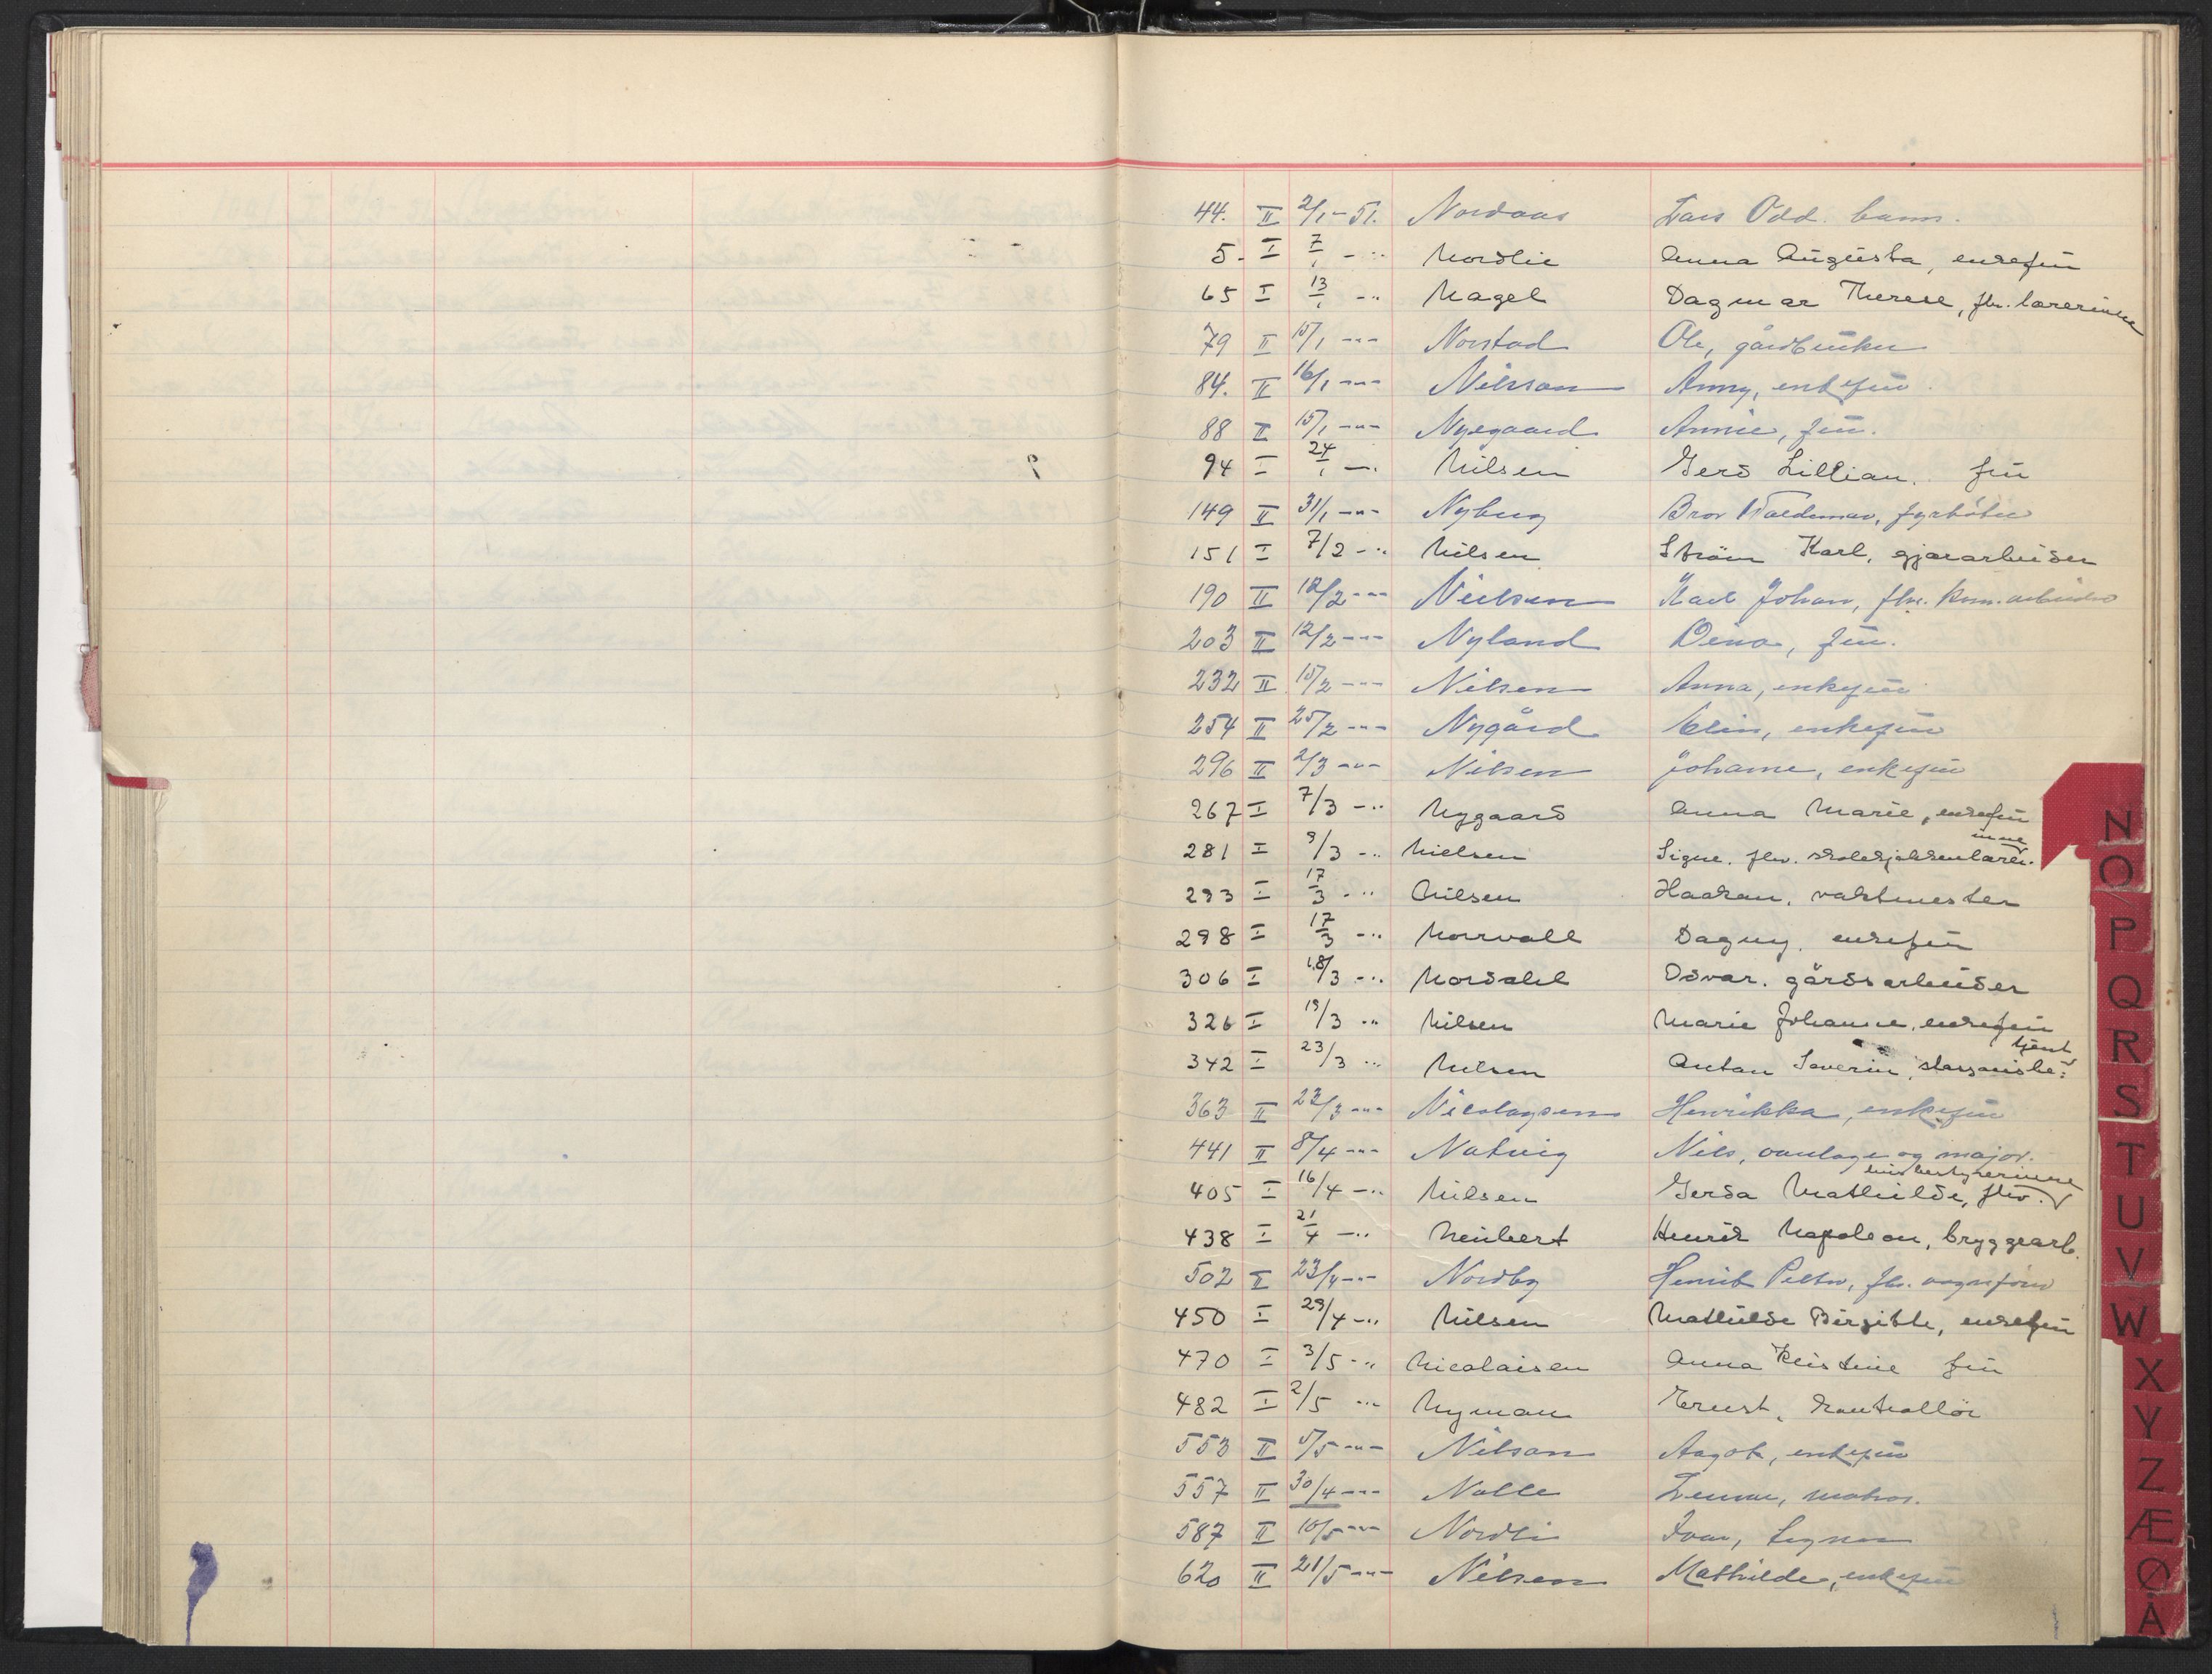 44. II 2/1-51. Nordaas Lars Odd. barn.
5. I 7/1 -"- Nordlie Anna Augusta, enkefru
65 I 13/1 -"- Nagel Dagmar Therese, fhv. lærerinne
79 II 15/1 -"- Norstad Ole, gårdbruker
84. II 16/1 -"- Nilsson Anny, enkefru
88 II 15/1 -"- Nyegaard Annie, fru.
94 I 24/1 -"- Nilsen Gerd Lillian. fru
149 II 31/1 -"- Nyberg Bror Waldemar, fyrbøter
151 I 7/2 -"- Nilsen Strøm Karl, gjørarbeider
190 II 12/2 -"- Nielsen Karl Johan, fhv. kom.arbeider
203 II 12/2 -"- Nyland Oena, fru.
232 II 15/2 -"- Nilsen Anna, enkefru
254 II 25/2 -"- Nygård Elin, enkefru
296 II 2/3 -"- Nilsen Johanne, enkefru
267 I 7/3 -"- Nygaard Anna Marie, enkefru
281 I 9/3 -"- Nielsen Signe. fhv. skolekjøkkenlærerinne
293 I 17/3 -"- Nilsen Haakon, vaktmester
298 I 17/3 -"- Norrvall Dagny, enkefru
306 I 18/3 -"- Nordahl Odvar. gårdsarbeider
326 I 19/3 -"- Nilsen Marie Johanne, enkefru
342 I 23/3 -"- Nilsen Anton Severin, stasjonsbetjent
363 II 23/3 -"- Nicolaysen Henrikka, enkefru
441 II 8/4 -"- Natvig Nils, overlege og major.
405 I 16/4 -"- Nilsen Gerda Mathilde, fhv. husbestyrerinne
438 I 21/4 -"- Neubert Henrik Napoleon, bryggearb.
502 II 23/4 -"- Nordby Henrik Petter, fhv. vognfører
450 I 29/4 -"- Nilsen Mathilde Birgitte, enkefru
470 I 3/5 -"- Nicolaisen Anna Kristine fru
482 I 2/5 -"- Nyman Ernst, kontrollør
553 II 5/5 -"- Nilson Aagot, enkefru
557 II 30/4 -"- Nolle matros.
587 II 10/5 -"- Nordli Ivar, tegner
620 II 21/5 -"- Nilsen Mathilde, enkefru
N
O
P
Q
R
S
T
U
V
W
X
Y
Z
Æ
Ø
Å